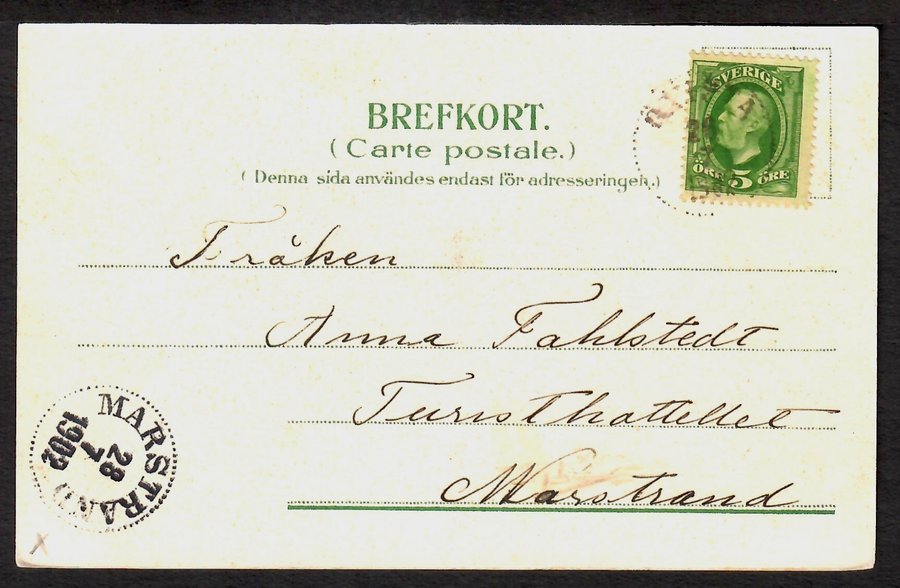 BREFKORT.
(Carte postale.)
(Denna sida användes endast för adresseringen.)
SVERIGE
5
ÖRE ÖRE
Fröken
Anna Fahlstedt
Turisthottellet
Marstrand
MARSTRAND
28
7
1902
X